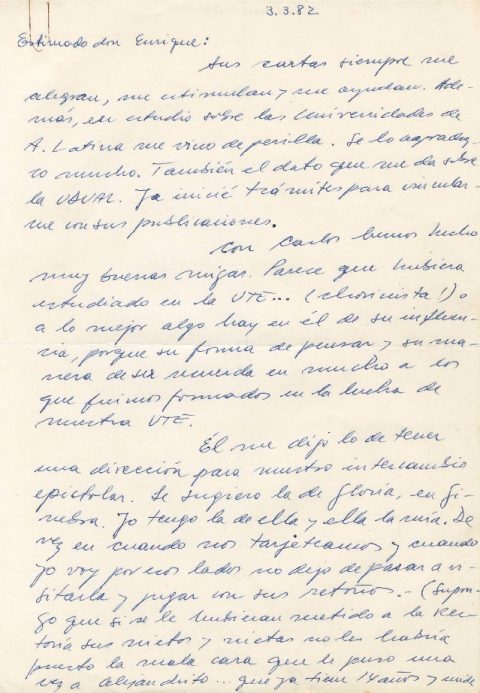 3.3.82
Estimado don Enrique:
Sus cartas siempre me
alegran, me estimulan y me ayudan. Ade-
más, su estudio sobre las Universidades de
A. Latina me vino de perilla. Se lo agradez-
co mucho. También el dato que me da sobre
la UDUAL. Ya inicié trámites para vincular-
me con sus publicaciones.
Con Carlos hemos hecho
muy buenas migas. Parece que hubiera
estudiado en la UTE... (chovinista!) o
a lo mejor algo hay en él de su influen-
cia, porque su forma de pensar y su ma-
nera de ser recuerda en mucho a los
que fuimos formados en la lucha de
nuestra UTE.
Él me dijo lo de tener
una dirección para nuestro intercambio
epistolar. Le sugiero la de Gloria, en Gi-
nebra. Yo tengo la de ella y ella la mía. De
vez en cuando nos tarjeteamos y cuando
yo voy por esos lados no dejo de pasar a vi-
sitarla y jugar con sus retoños.- (Supon-
go que si se le hubieran metido a la Rec-
toría sus nietos y nietas no les habría
puesto la mala cara que le puso una
vez a Alejandrito... que ya tiene 14 años y mide